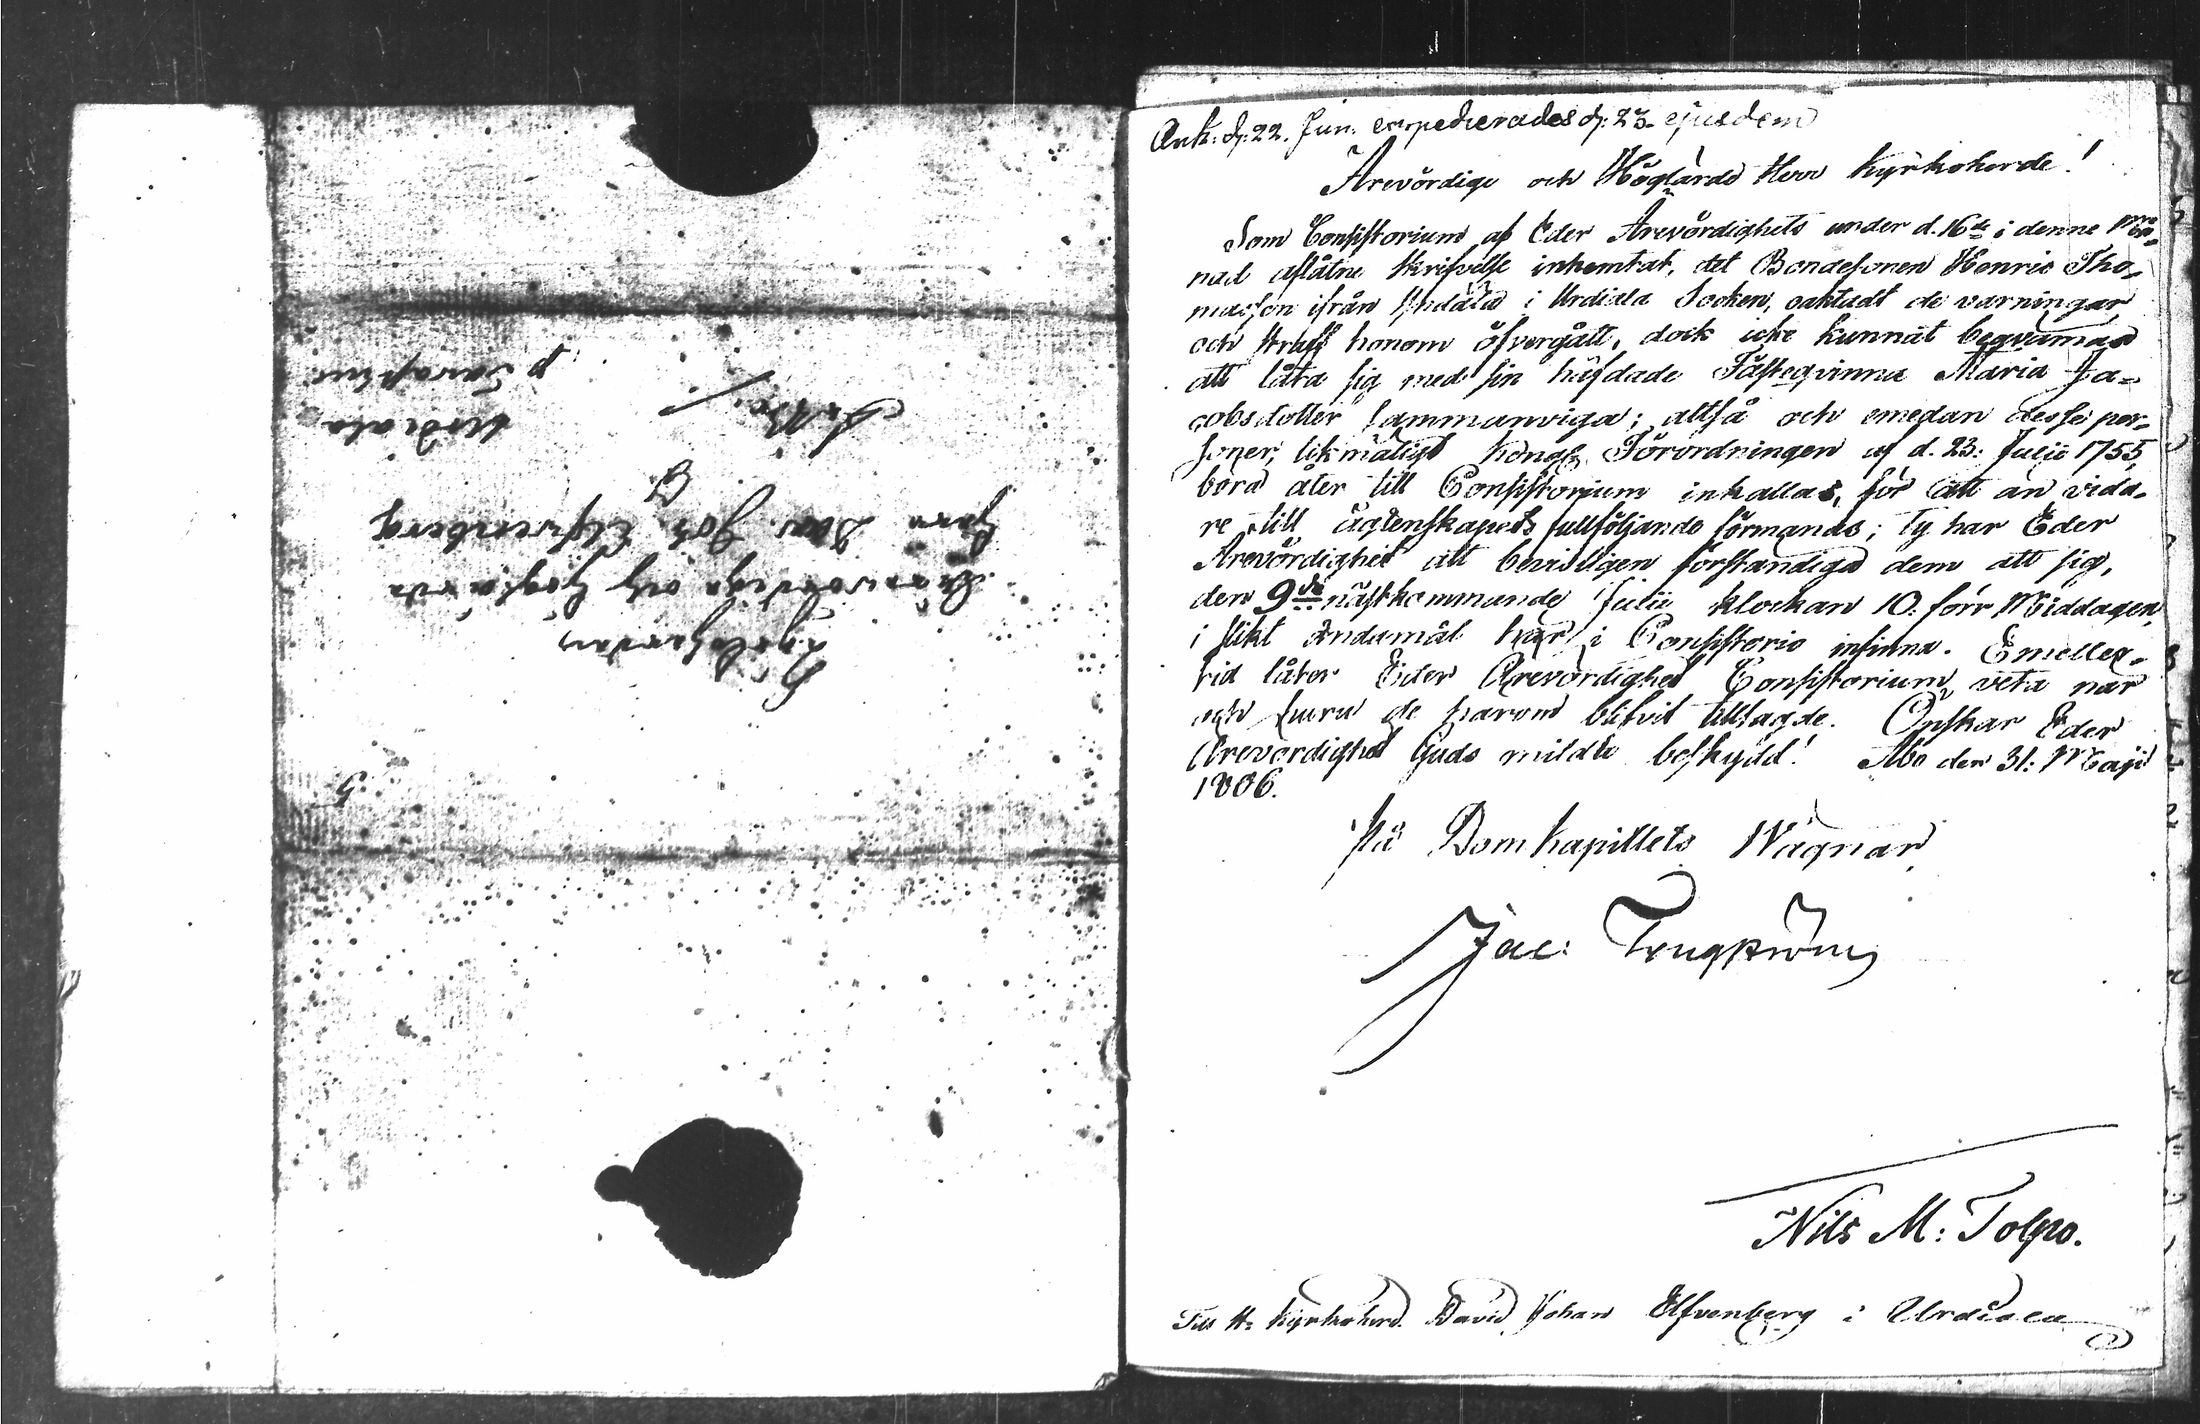 Kyrkoherden
Ärewördige och Höglärde
Herr Dav. Joh. Elfvenberg
Åbo.
Urdiala
p Tavasthus
5
Ank: d: 22. Jun: expedierades d: 23. ejusdem
Ärevördige och Höglärde Herr Kyrkoherde!
Som Consistorium af Eder Ärevördighets under d. 16de i denne Må-
nad aflåtne skrifvelse inhemtat, det Bondesonen Henric Tho-
masson ifrån i Urdiala Socken, oaktadt de varningar
och straff honom öfvergått, dock icke kunnat beqvämas
att låta sig med sin häfdade Fästeqvinna Maria Ja-
cobsdotter sammanviga; altså och emedan desse per-
soner, likmätigt Kongl. Förordningen af d. 23: Julii 1755,
böra åter till Consistorium inkallas, för att än vida-
re till ägtenskapets fullföljande förmanas; Ty har Eder
Ärevördighet att bevisligen förständiga dem att sig,
den 9de nästkommande Julii klockan 10. förr Middagen,
i slikt ändamål här i Consistorio infinna. Emeller-
tid låter Eder Ärevördighet Consistorium veta när
och huru de härom blifvit tillsagde. Önskar Eder
Ärevördighet Guds milda beskydd! Åbo den 31: Maji
1806.
På Domkapitlets Wägnar,
Jac: Tengström
Nils M: Tolpo.
Till H: Kyrkoherd. David Johan Elfvenberg i Urdiala